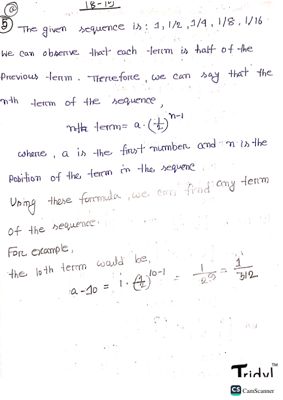 18-10
② ⑤ The given sequence is: 1, 1/2, 1/4, 1/8, 1/16
We can observe that each term is half of the
previous term. Therefore, we can say that the
nth term of the sequence,
nth term = a · (1/2)^n-1
where, a is the first number and n is the
position of the term in the sequence
Using these formula, we can find any term
of the sequence.
For example,
the 10th term would be,
a-10 = 1 · (1/2)^10-1 = 1/2^9 = 1/512
Tridul™
CS CamScanner